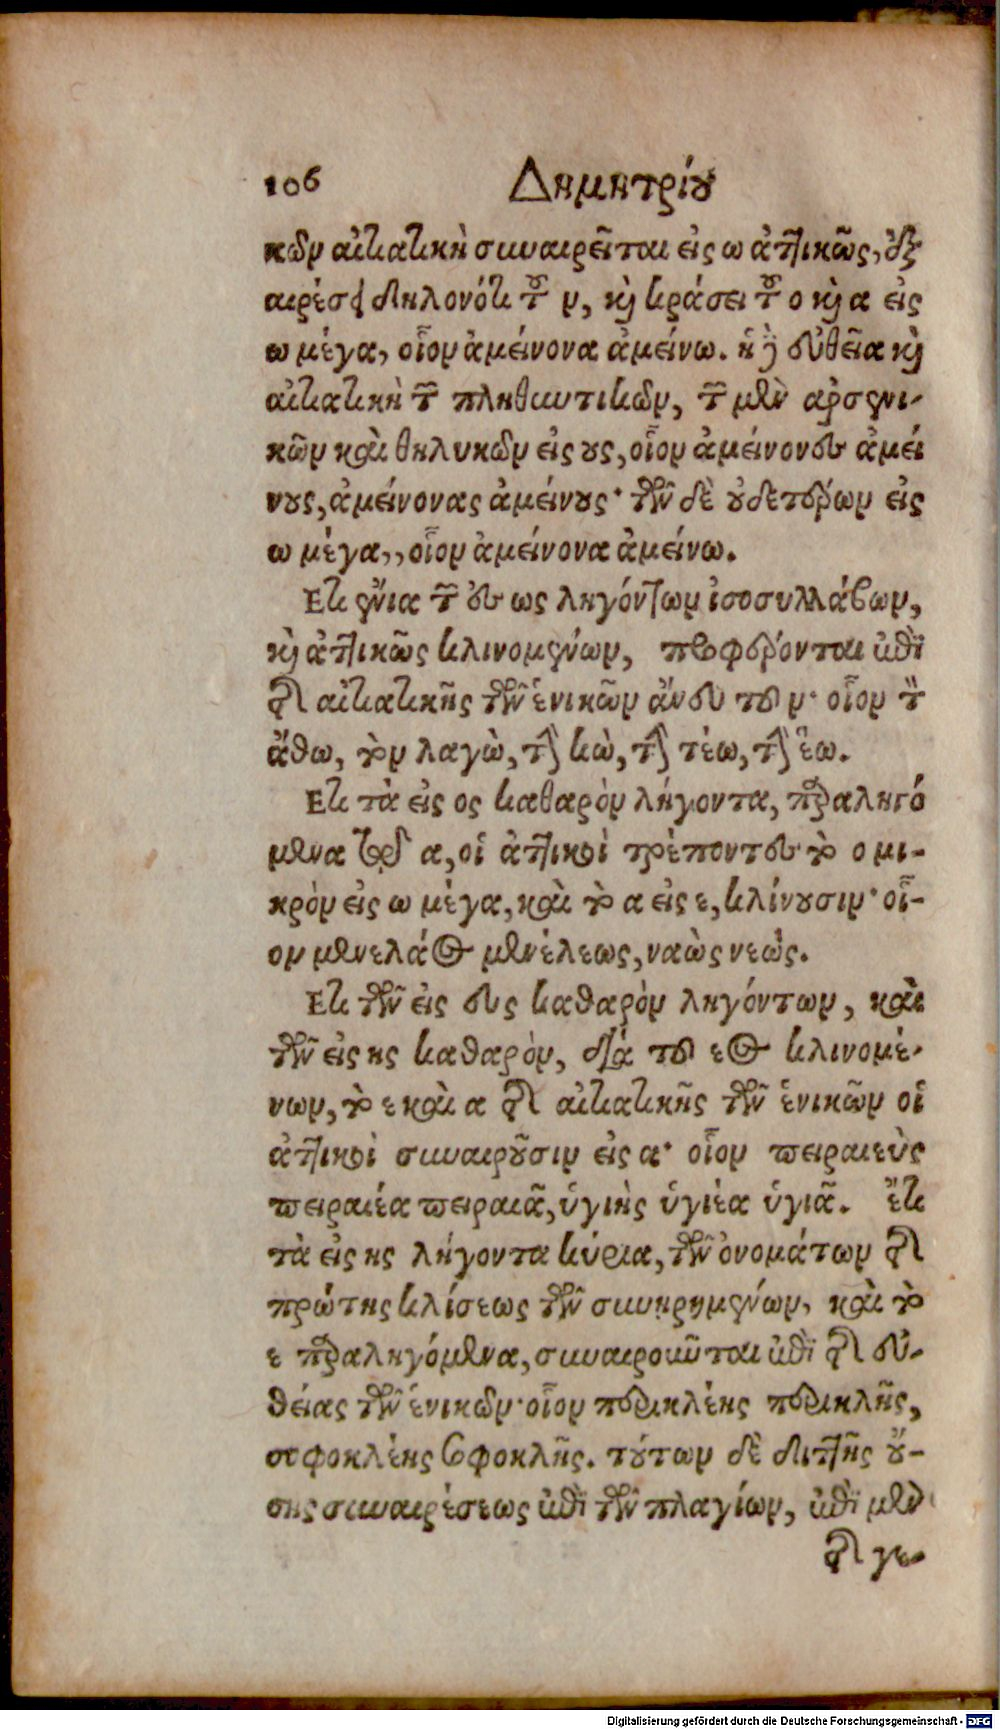 106 Δημητρίου
κῶν αἰτιατικὴ συναιρεῖται εἰς ω ἀττικῶς, ἐξ
αιρέσει δηλονότι τοῦ ν, καὶ κράσει τοῦ ο καὶ α εἰς
ω μέγα, οἷον ἀμείνονα ἀμείνω. ἡ δὲ εὐθεῖα καὶ
αἰτιατικὴ τῶν πληθυντικῶν, τῶν μὲν ἀρσενι-
κῶν καὶ θηλυκῶν εἰς ους, οἷον ἀμείνονες ἀμεί
νους, ἀμείνονας ἀμείνους· τῶν δὲ οὐδετέρων εἰς
ω μέγα,, οἷον ἀμείνονα ἀμείνω.
Ἔτι ἔνια τῶν εἰς ως ληγόντων ἰσοσυλλάβων,
καὶ ἀττικῶς κλινομένων, προφέρονται ἐπὶ
τῆς αἰτιατικῆς τῶν ἑνικῶν ἄνευ τοῦ ν· οἷον τὸν
ἄθω, τὸν λαγὼ, τὴν κὼ, τὴν τέω, τὴν ἕω.
Ἔτι τὰ εἰς ος καθαρὸν λήγοντα, παραληγό
μενα τῷ α, οἱ ἀττικοὶ τρέποντες τὸ ο μι-
κρὸν εἰς ω μέγα, καὶ τὸ α εἰς ε, κλίνουσιν· οἷ-
ον μενελάος μενέλεως, ναὼς νεώς.
Ἔτι τῶν εἰς ευς καθαρὸν ληγόντων, καὶ
τῶν εἰς ης καθαρὸν, διὰ τοῦ εος κλινομέ-
νων, τὸ ε καὶ α τῆς αἰτιατικῆς τῶν ἑνικῶν οἱ
ἀττικοὶ συναιροῦσιν εἰς α· οἷον πειραιεὺς
πειραιέα πειραιᾶ, ὑγιὴς ὑγιέα ὑγιᾶ. ἔτι
τὰ εἰς ης λήγοντα κύρια, τῶν ὀνομάτων τῆς
πρώτης κλίσεως τῶν συνῃρημένων, καὶ τὸ
ε παραληγόμενα, συναιροῦνται ἐπὶ τῆς εὐ-
θείας τῶν ἑνικῶν· οἷον περικλέης περικλῆς,
σοφοκλέης σοφοκλῆς. τούτων δὲ διττῆς οὔ-
σης συναιρέσεως ἐπὶ τῶν πλαγίων, ἐπὶ μὲν
τῆς γε-
Digitalisierung gefördert durch die Deutsche Forschungsgemeinschaft - DFG